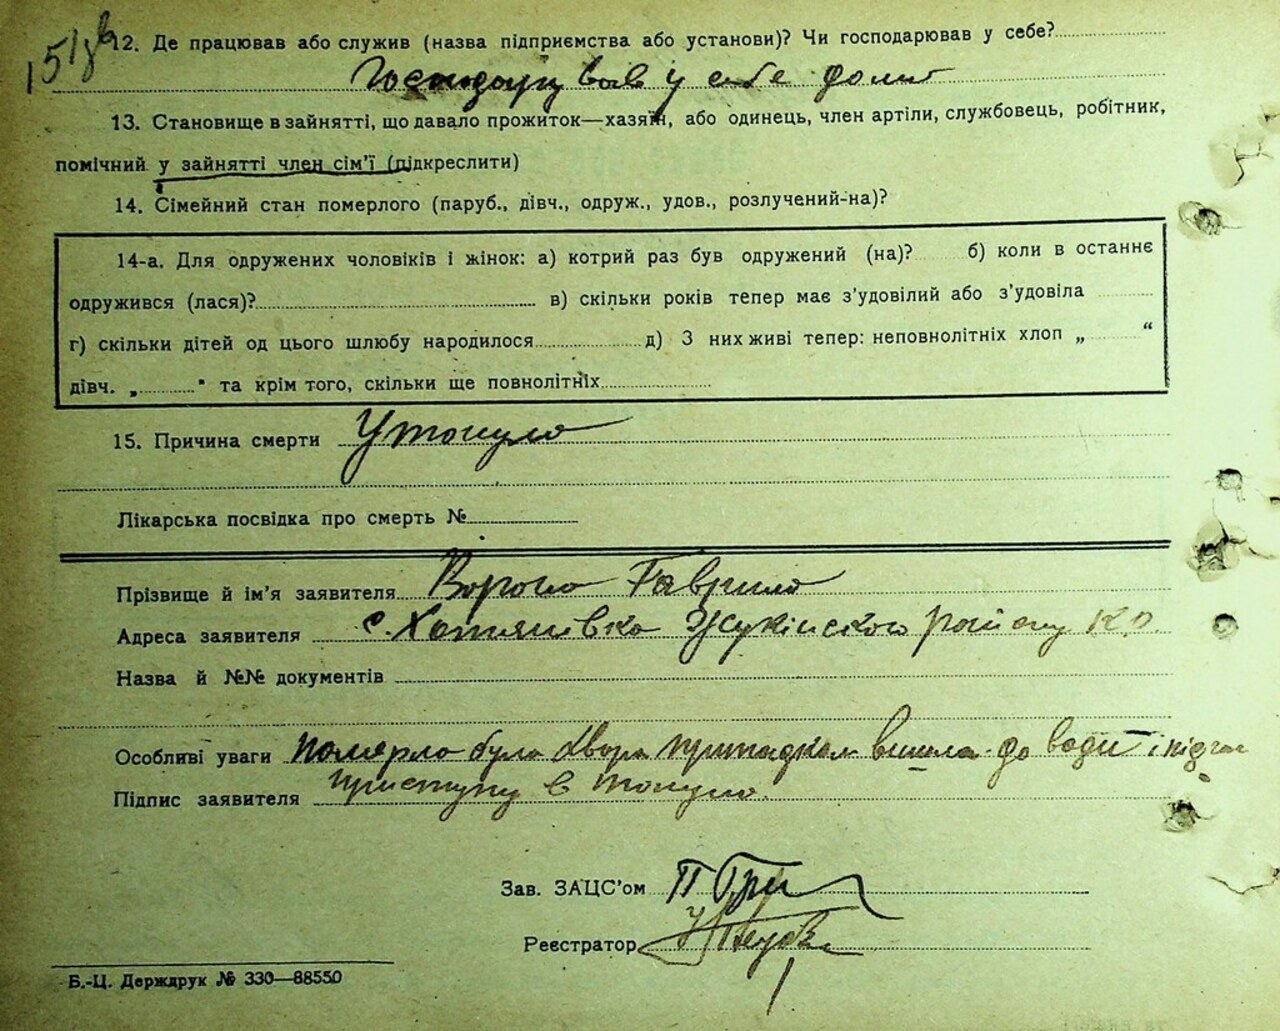 12. Де працював або служив (назва підприємства або установи)? Чи господарював у себе?
Господарував у себе дома
13. Становище в зайнятті, що давало прожиток—хазяїн, або одинець, член артіли, службовець, робітник,
помічний у зайнятті член сім'ї (підкреслити)
14. Сімейний стан померлого (паруб., дівч., одруж., удов., розлучений-на)?
14-а. Для одружених чоловіків і жінок: а) котрий раз був одружений (на)? б) коли в останнє
одружився (лася)? в) скільки років тепер має з'удовілий або з'удовіла
г) скільки дітей од цього шлюбу народилося д) З них живі тепер: неповнолітніх хлоп „ “
дівч. „ " та крім того, скільки ще повнолітніх
15. Причина смерти Утонула
Лікарська посвідка про смерть №
Прізвище й ім'я заявителя Ворона Гаврило
Адреса заявителя с. Хотянівка Жукінского району К.О.
Назва й №№ документів
Особливі уваги Померла була хвора припадком вишла до води і під час
приступу втонула.
Підпис заявителя
Зав. ЗАЦС'ом
Реєстратор
Б.-Ц. Держдрук № 330—88550